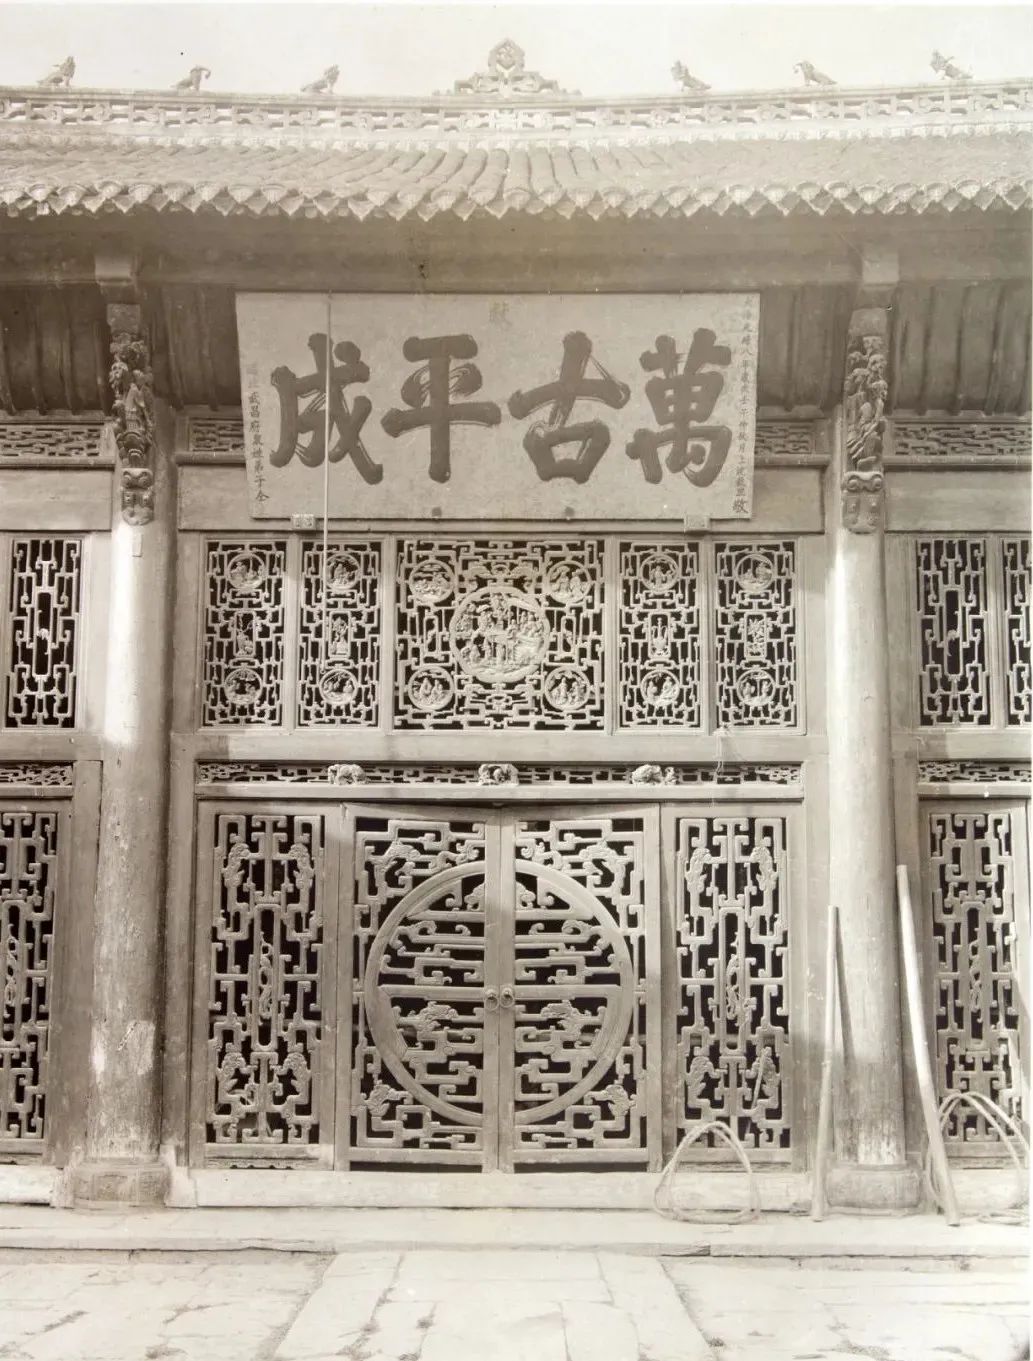 大清光緒八年歲次壬午仲秋月上浣穀旦敬
献
萬古平成
武昌府眾姓弟子仝